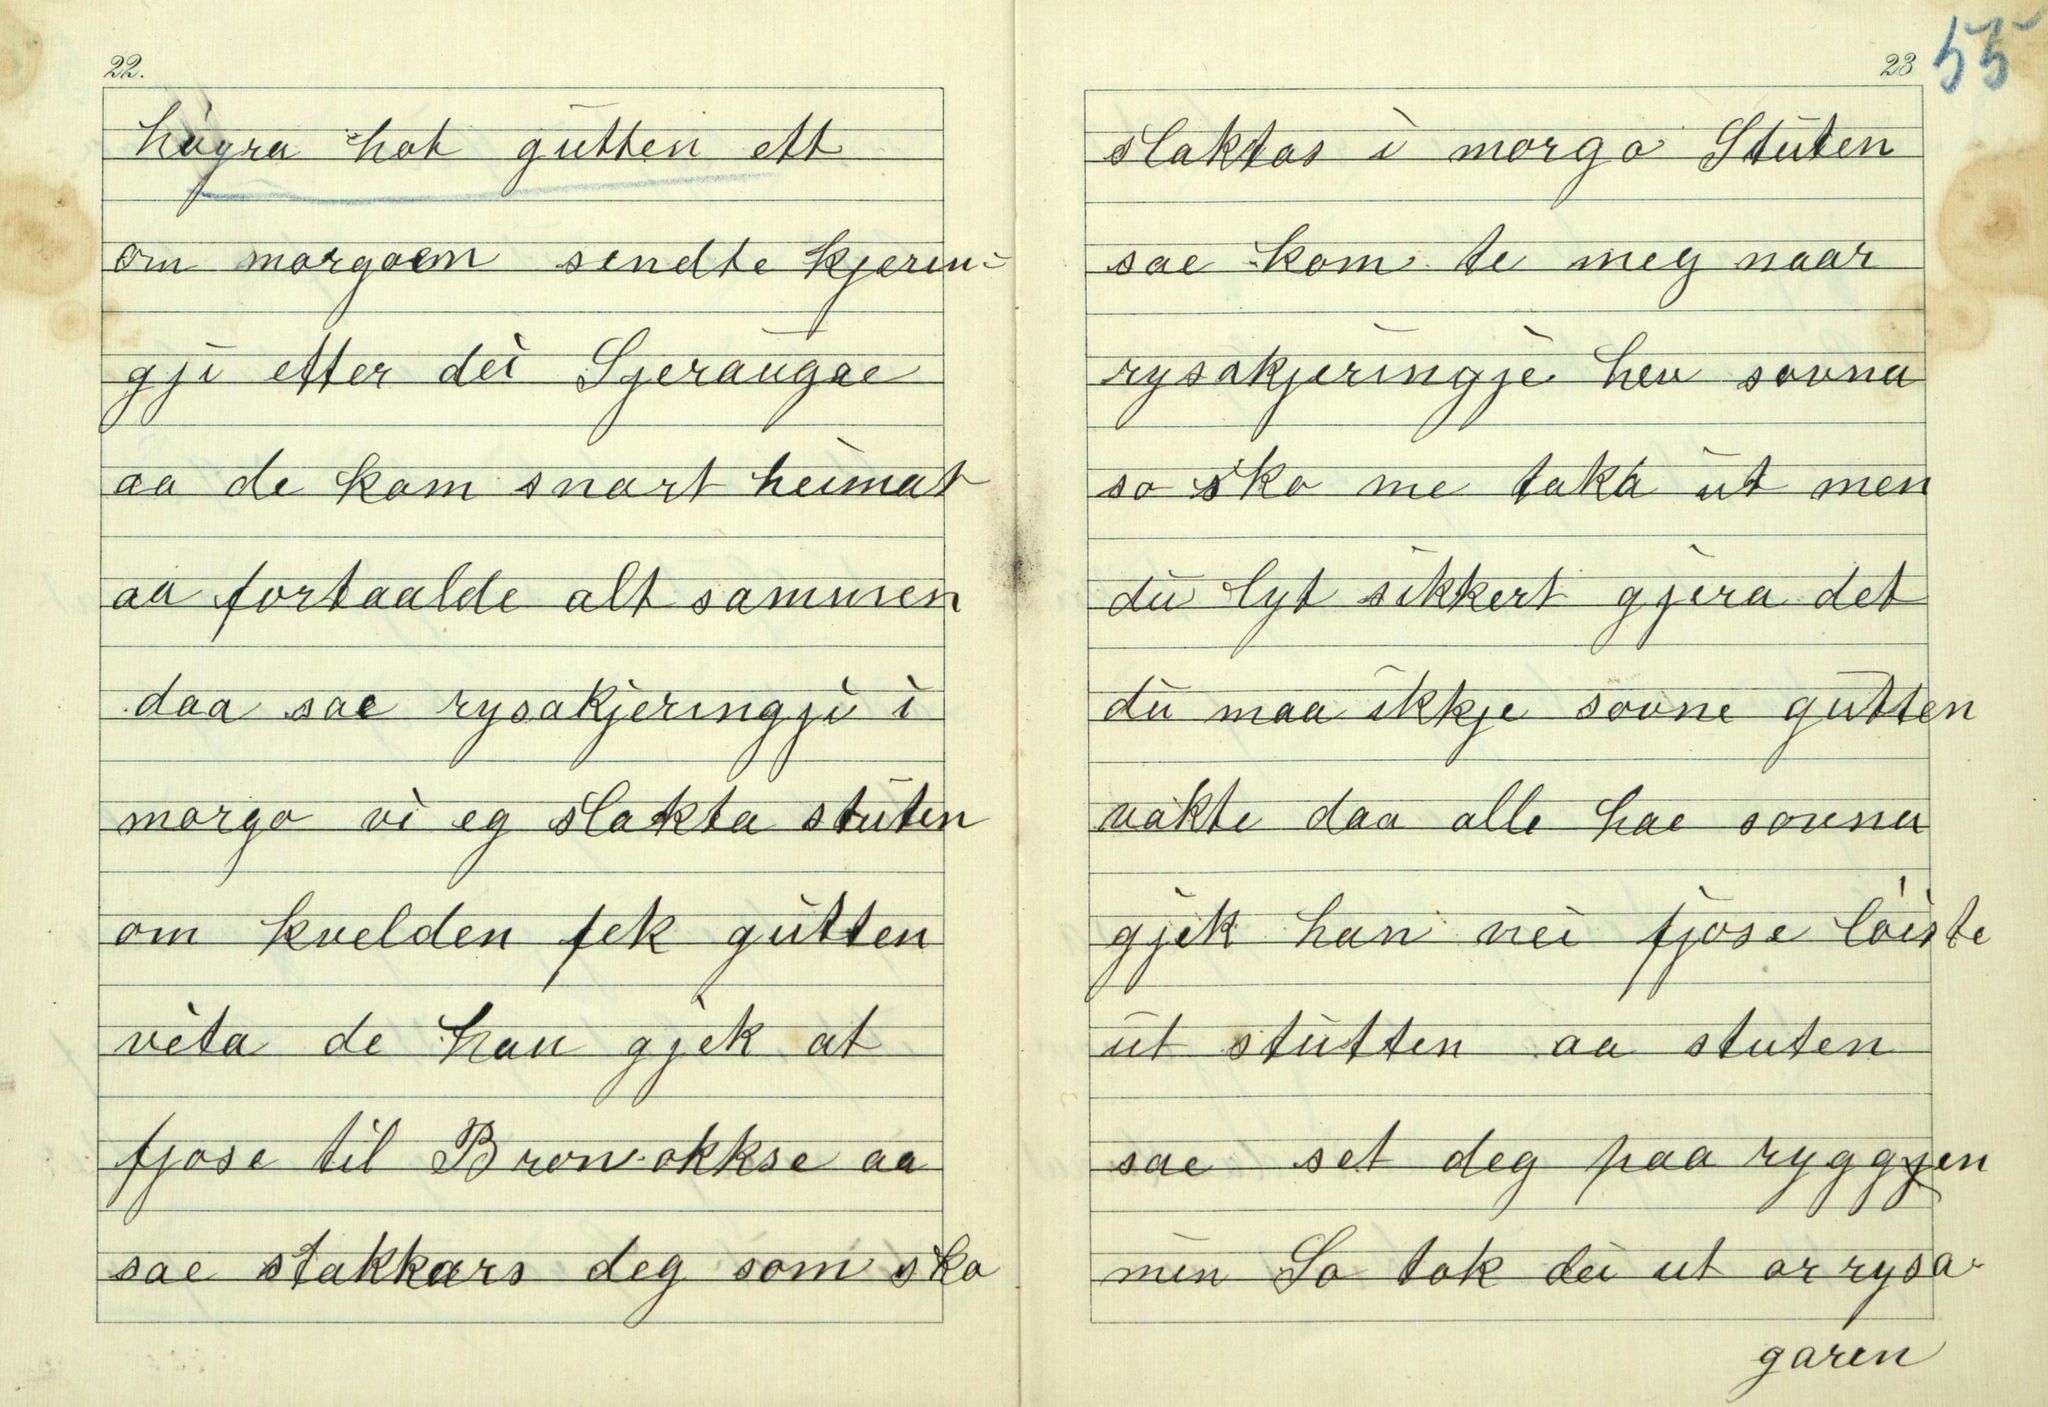 22.
högra hot gutten ett
om morgoen sendte kjerin-
gji etter dei Sjeraugae
aa de kom snart heimat
aa fortaalde alt sammen
daa sae rysakjeringji i
morgo vi eg slakta stuten
om kvelden fek gutten
vita de han gjek at
fjose til Bronokkse aa
sae stakkars deg som sko
23
55
slaktas i morgo Stuten
sae kom te meg naar
rysakjeringje hev sovna
so sko me taka ut men
du lyt sikkert gjera det
du maa ikkje sovne gutten
vakte daa alle hae sovna
gjek han nei fjose löiste
ut stutten aa stuten
sae set deg paa ryggjen
min So tok dei ut or rysa-
garen